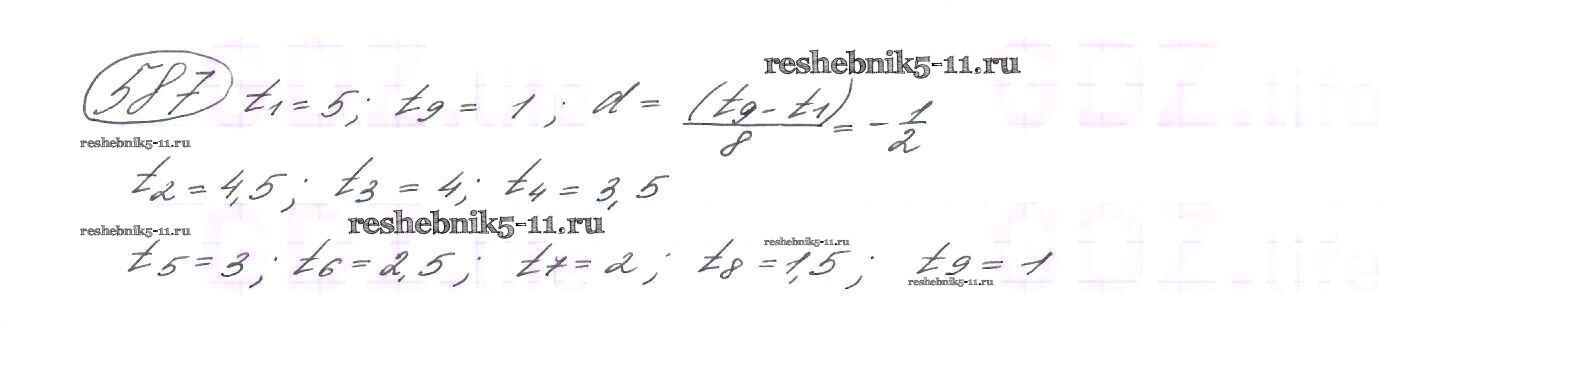 reshebnik5-11.ru
587 t₁ = 5; t₉ = 1; d = (t₉ - t₁)/8 = -1/2
reshebnik5-11.ru
t₂ = 4,5; t₃ = 4; t₄ = 3,5
reshebnik5-11.ru reshebnik5-11.ru reshebnik5-11.ru
t₅ = 3; t₆ = 2,5; t₇ = 2; t₈ = 1,5; t₉ = 1
reshebnik5-11.ru